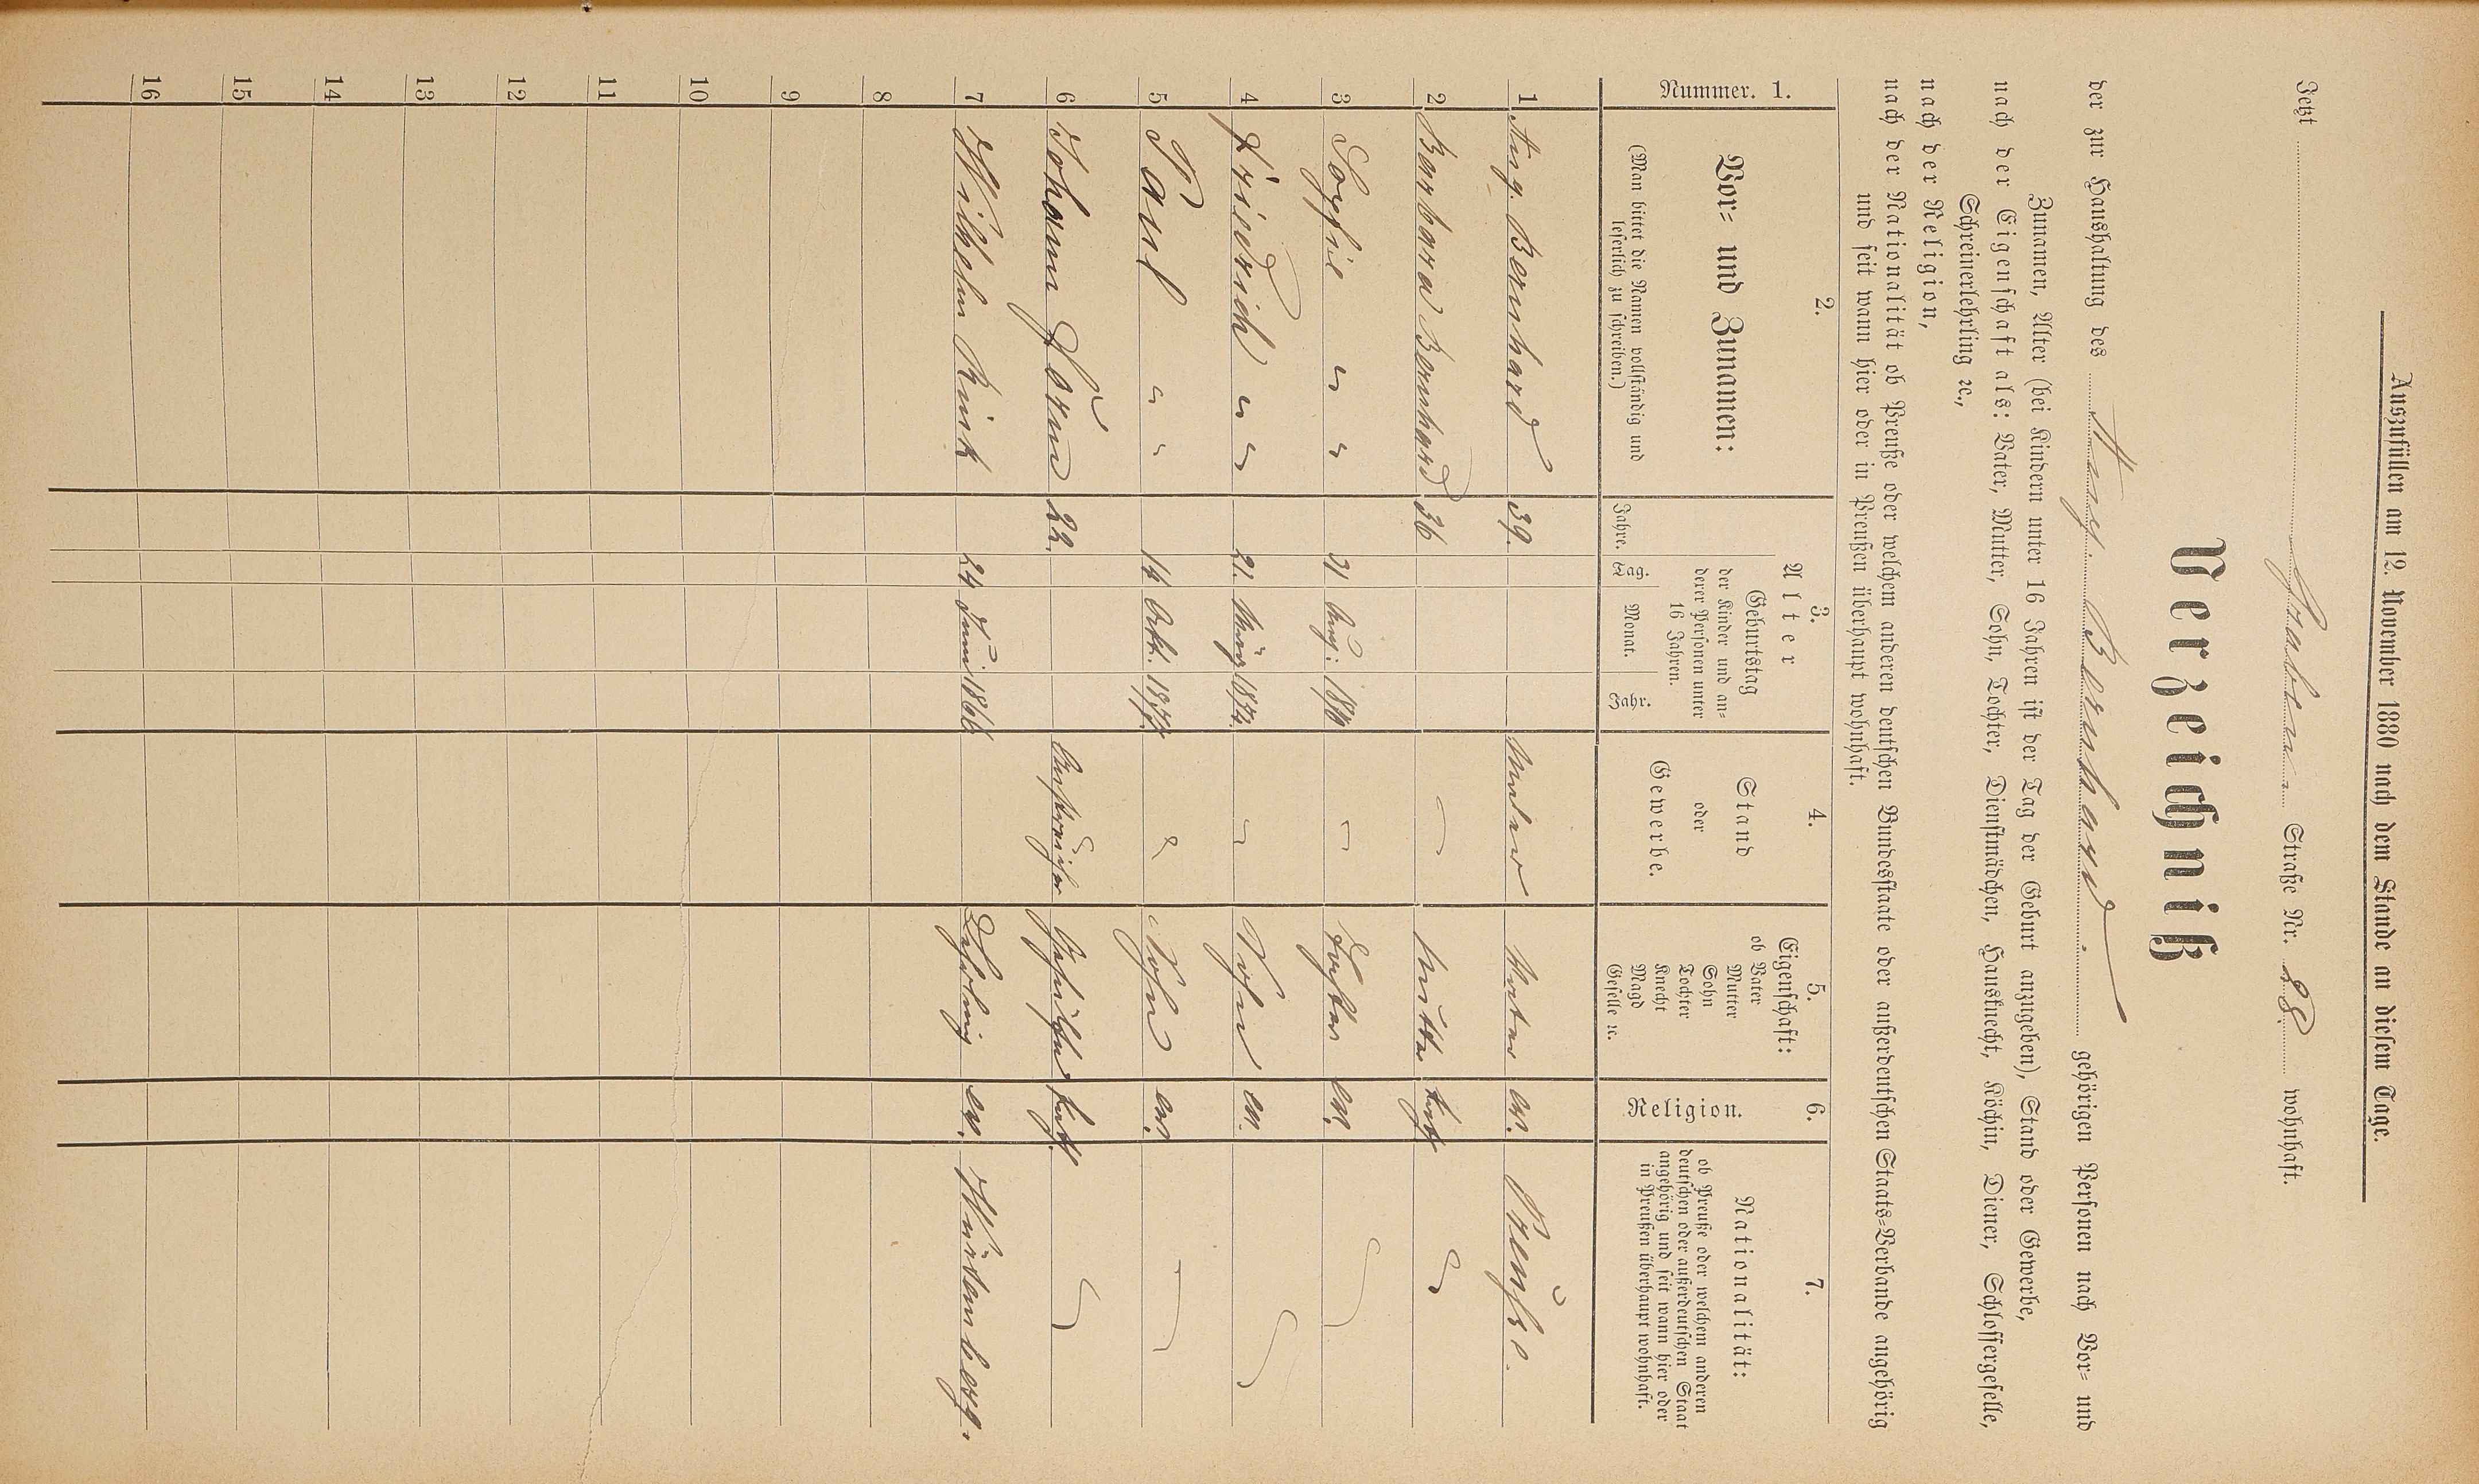 Auszufüllen am 12. November 1880 nach dem Stande an diesem Tage.
Jetzt Graben Straße Nr. 28 wohnhaft.
Verzeichniß
der zur Haushaltung des Aug. Bernhard. gehörigen Personen nach Vor- und
Zunamen, Alter (bei Kindern unter 16 Jahren ist der Tag der Geburt anzugeben), Stand oder Gewerbe,
nach der Eigenschaft als: Vater, Mutter, Sohn, Tochter, Dienstmädchen, Hausknecht, Köchin, Diener, Schlossergeselle,
Schreinerlehrling ꝛc.,
nach der Religion,
nach der Nationalität ob Preuße oder welchem anderen deutschen Bundesstaate oder außerdeutschen Staats-Verbande angehörig
und seit wann hier oder in Preußen überhaupt wohnhaft.
Nummer. 1.
2.
Vor- und Zunamen:
(Man bittet die Namen vollständig und
leserlich zu schreiben.)
3.
Alter
Jahre.
Geburtstag
der Kinder und an-
derer Personen unter
16 Jahren.
Tag. Monat. Jahr.
4.
Stand
oder
Gewerbe.
5.
Eigenschaft:
ob Vater
Mutter
Sohn
Tochter
Knecht
Magd
Geselle ꝛc.
6.
Religion.
7.
Nationalität:
ob Preuße oder welchem anderen
deutschen oder außerdeutschen Staat
angehörig und seit wann hier oder
in Preußen überhaupt wohnhaft.
1 Aug. Bernhard 39. Maler Vater ev. Preuße.
2 Barbara Bernhard 36 — Mutter kath "
3 Sophie " " 31 Aug: — Tochter ev. "
4 Friedrich " " 21. März 1874. " Sohn ev. "
5 Paul " " 14 Okt. 1877. " Sohn ev. "
6 Johann 22. Anstreicher Gehülfe kath. "
7 Wilhelm Rink 24 Juni 1866 Lehrling ev. Würtemberg.
8
9
10
11
12
13
14
15
16